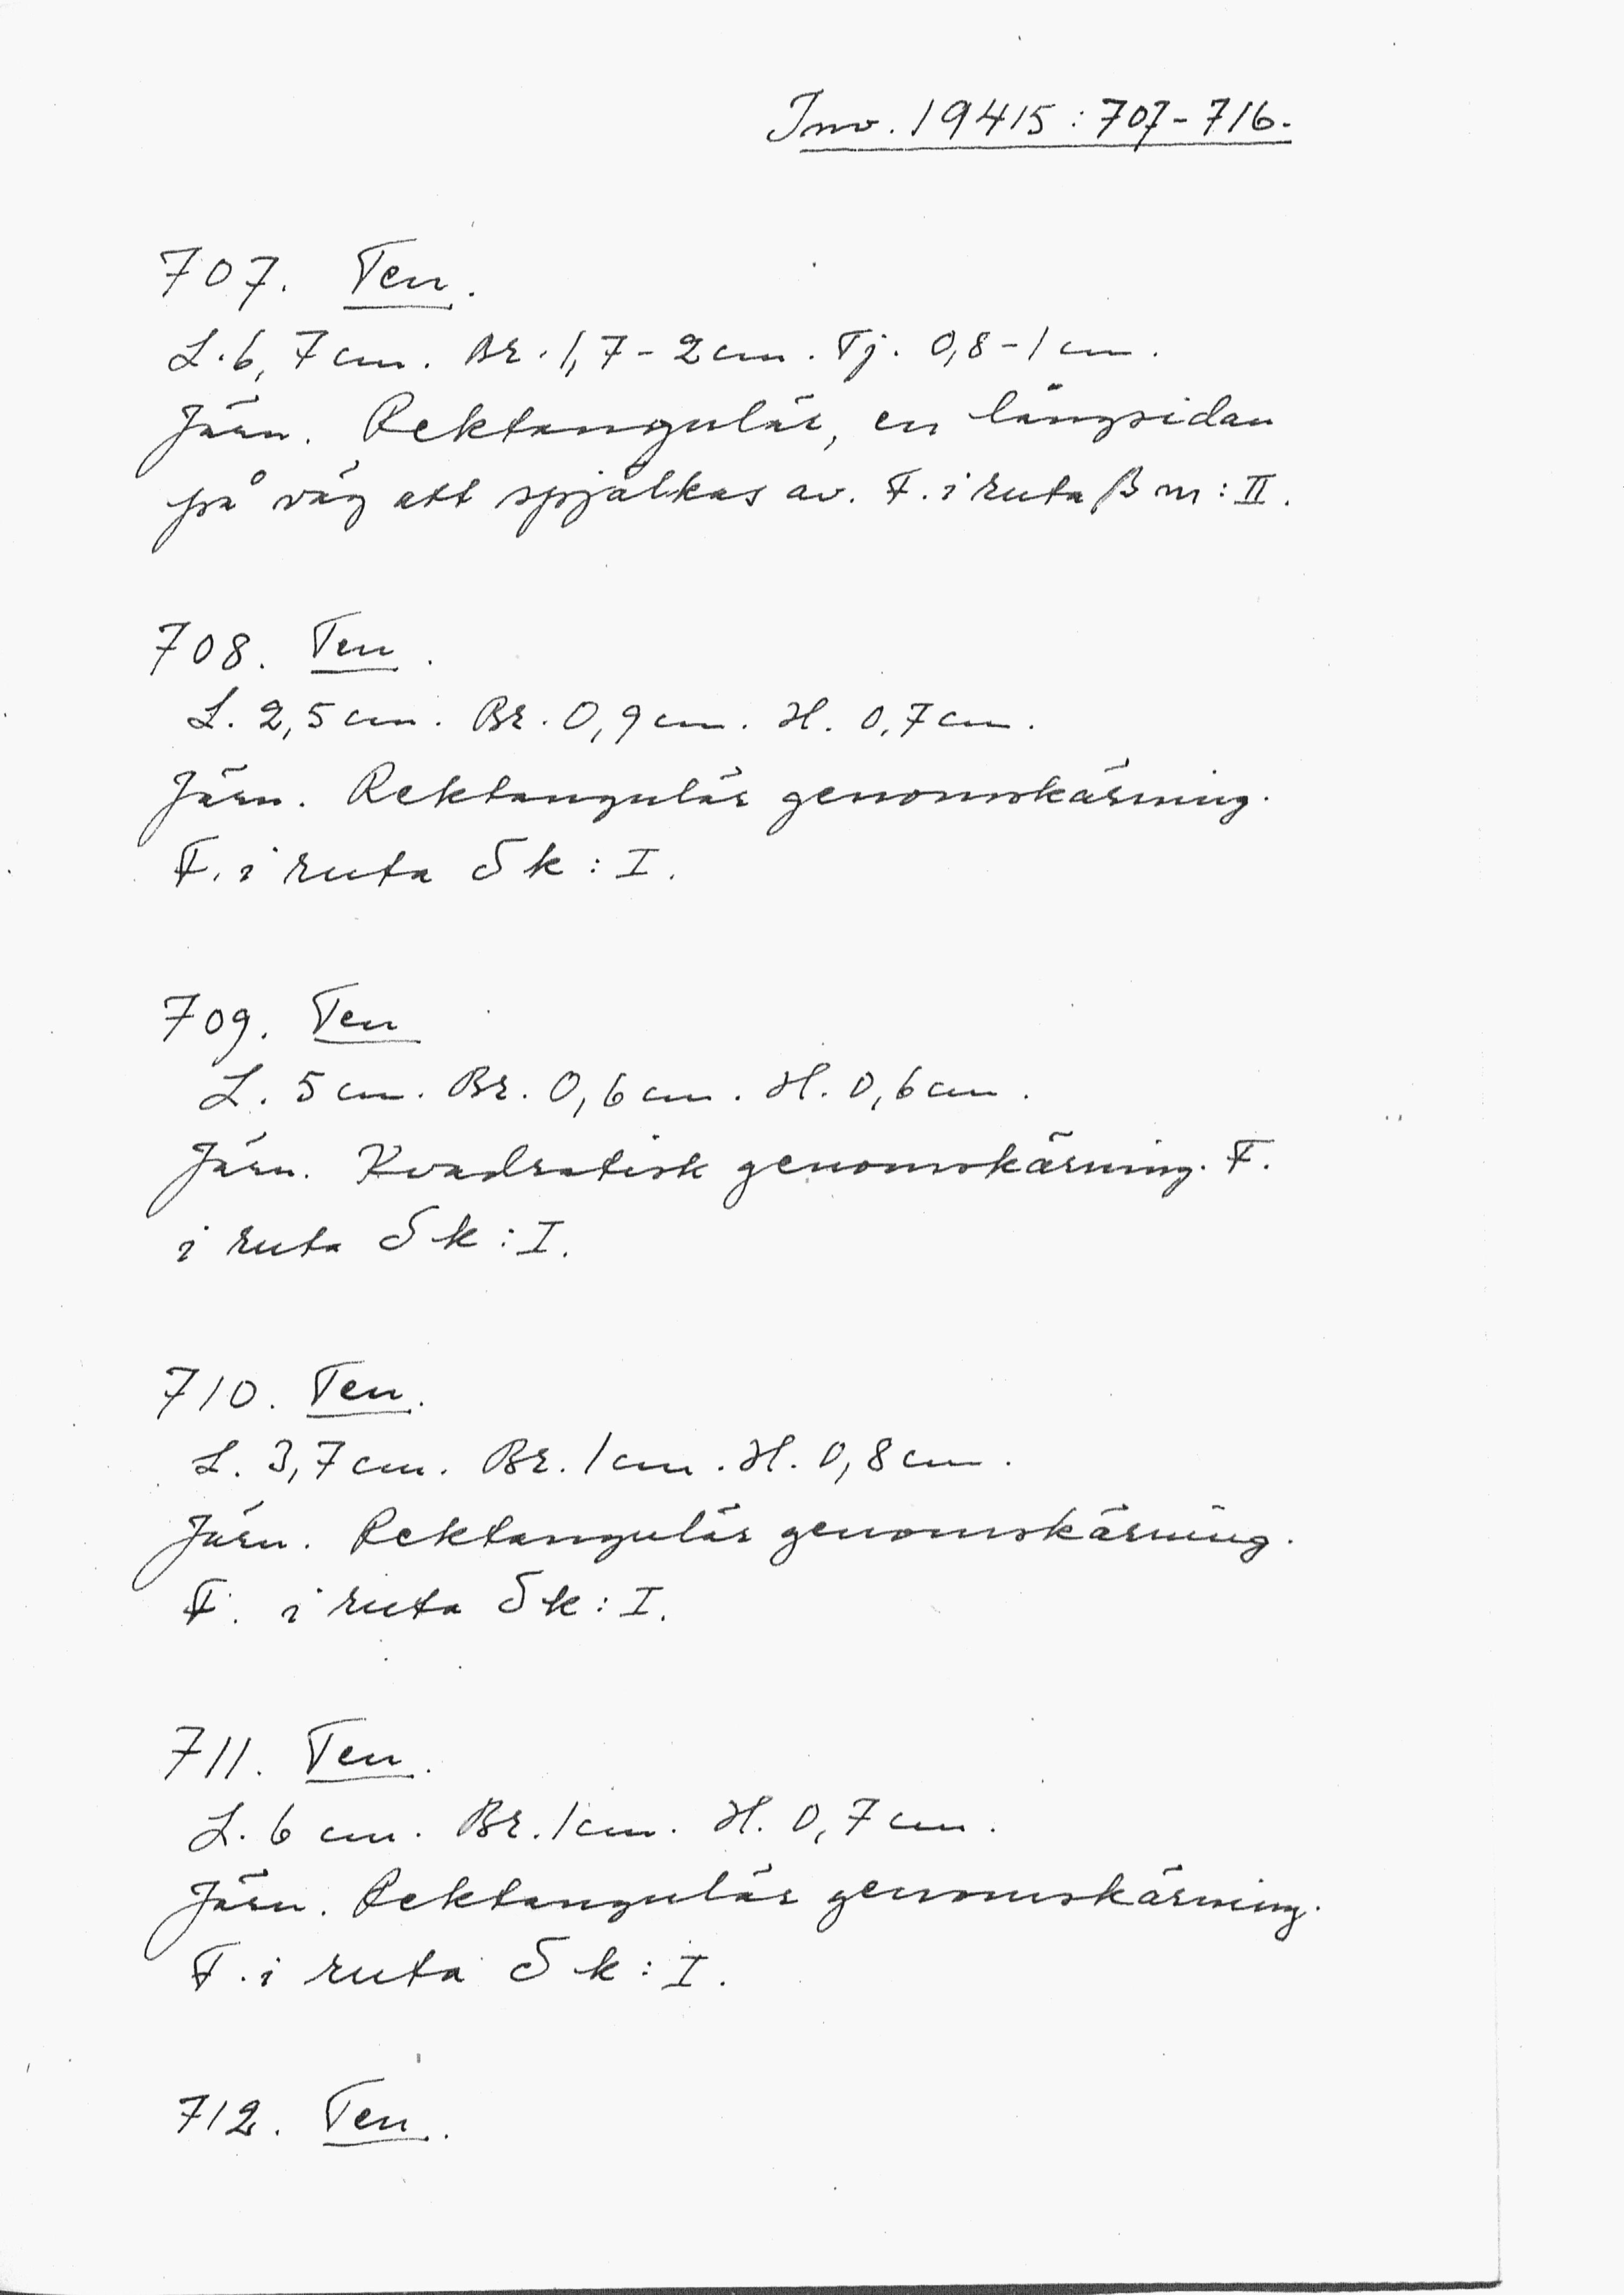 Inv. 19415:707-716.
707. Ten.
L. 6,7 cm. Br. 1,7-2 cm. Tj. 0,8-1 cm.
Järn. Rektangulär, en långsidan
på väg att spjälkas av. F. i ruta β m: II.
708. Ten.
L. 2,5 cm. Br. 0,9 cm. H. 0,7 cm.
Järn. Rektangulär genomskärning.
F. i ruta δ k: I.
709. Ten
L. 5 cm. Br. 0,6 cm. H. 0,6 cm.
Järn. Kvadratisk genomskärning. F.
i ruta δ k: I.
710. Ten.
L. 3,7 cm. Br. 1 cm. H. 0,8 cm.
Järn. Rektangulär genomskärning.
F. i ruta δ k: I.
711. Ten.
L. 6 cm. Br. 1 cm. H. 0,7 cm.
Järn. Rektangulär genomskärning.
F. i ruta δ k: I.
712. Ten.